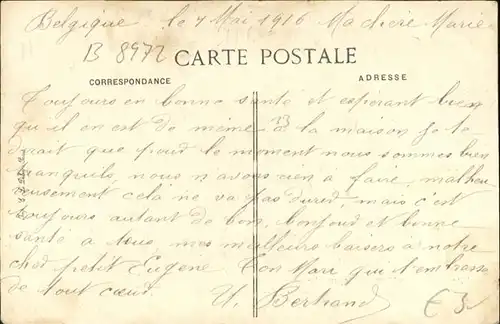 Belgique le 7 Mai 1916 Ma chère Marie
B 8972
CARTE POSTALE
CORRESPONDANCE
ADRESSE
Toujours en bonne santé et espérant bien
qu'il en est de même à la maison je te
dirait que pour le moment nous sommes bien
tranquils, nous n'avons rien à faire, malheu
reusement cela ne va pas durer, mais c'est
toujours autant de bon, bonjour et bonne
santé à tous, mes meilleurs baisers à notre
cher petit Eugène Ton Mari qui t'embrasse
de tout cœur. Bertrand
€3